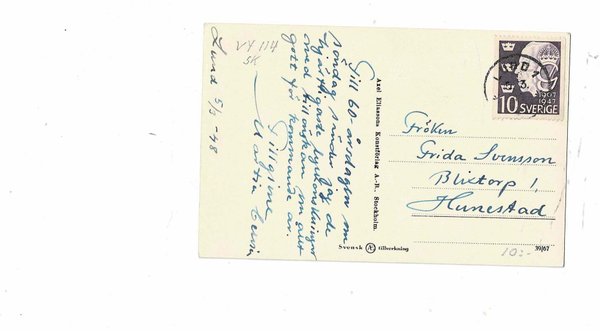 Lund 5/3 -48
VY 114
SK
Till 60-årsdagen om
söndag sänder jag de
hjärtligaste lyckönskningar
med tillönskan om allt
gott för kommande år.
Tillgivne
Martin
Axel Eliassons Konstförlag A.-B., Stockholm.
Svensk Æ tillverkning
LUND 1
1907
1947
10 SVERIGE
Fröken
Frida Svensson
Blixtorp 1,
Hunestad
10:-
39/67